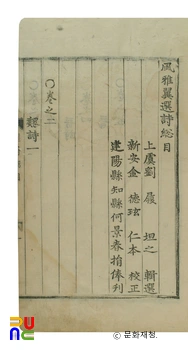 風雅翼選詩總目
上虞劉 履 坦之 輯選
新安金 德玹 仁本 校正
建陽縣知縣何景春捐俸刋
○卷之二
魏詩一
ⓒ 문화재청.